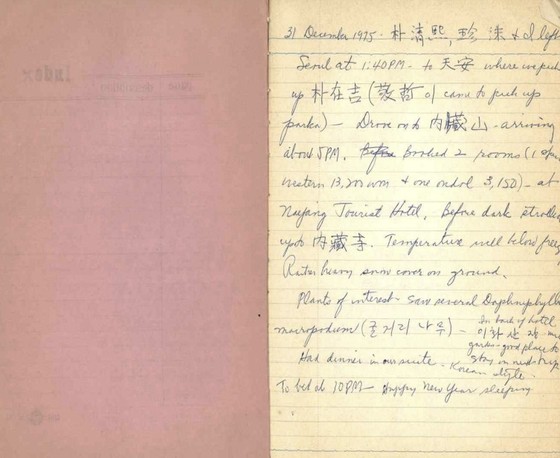 Index
31 December 1975 - 朴清熙, 珍洙 & I left
Seoul at 1:40PM - to 天安 where we pick
up 朴在吉 (敬哲이 came to pick up
parka) - Drove on to 內藏山 - arriving
about 5PM. Before booked 2 rooms (1
western 13,200 won & one ondol 3,150) - at
Naejang Tourist Hotel. Before dark strolled
up to 內藏寺. Temperature well below
Rather heavy snow cover on ground.
Plants of interest - saw several Daphniphyllum
macropodum (굴거리 나무) -
In back of hotel
이화
garden - good place to
stay on next trip
Had dinner in our suite - Korean style.
To bed at 10PM - Happy New Year sleeping